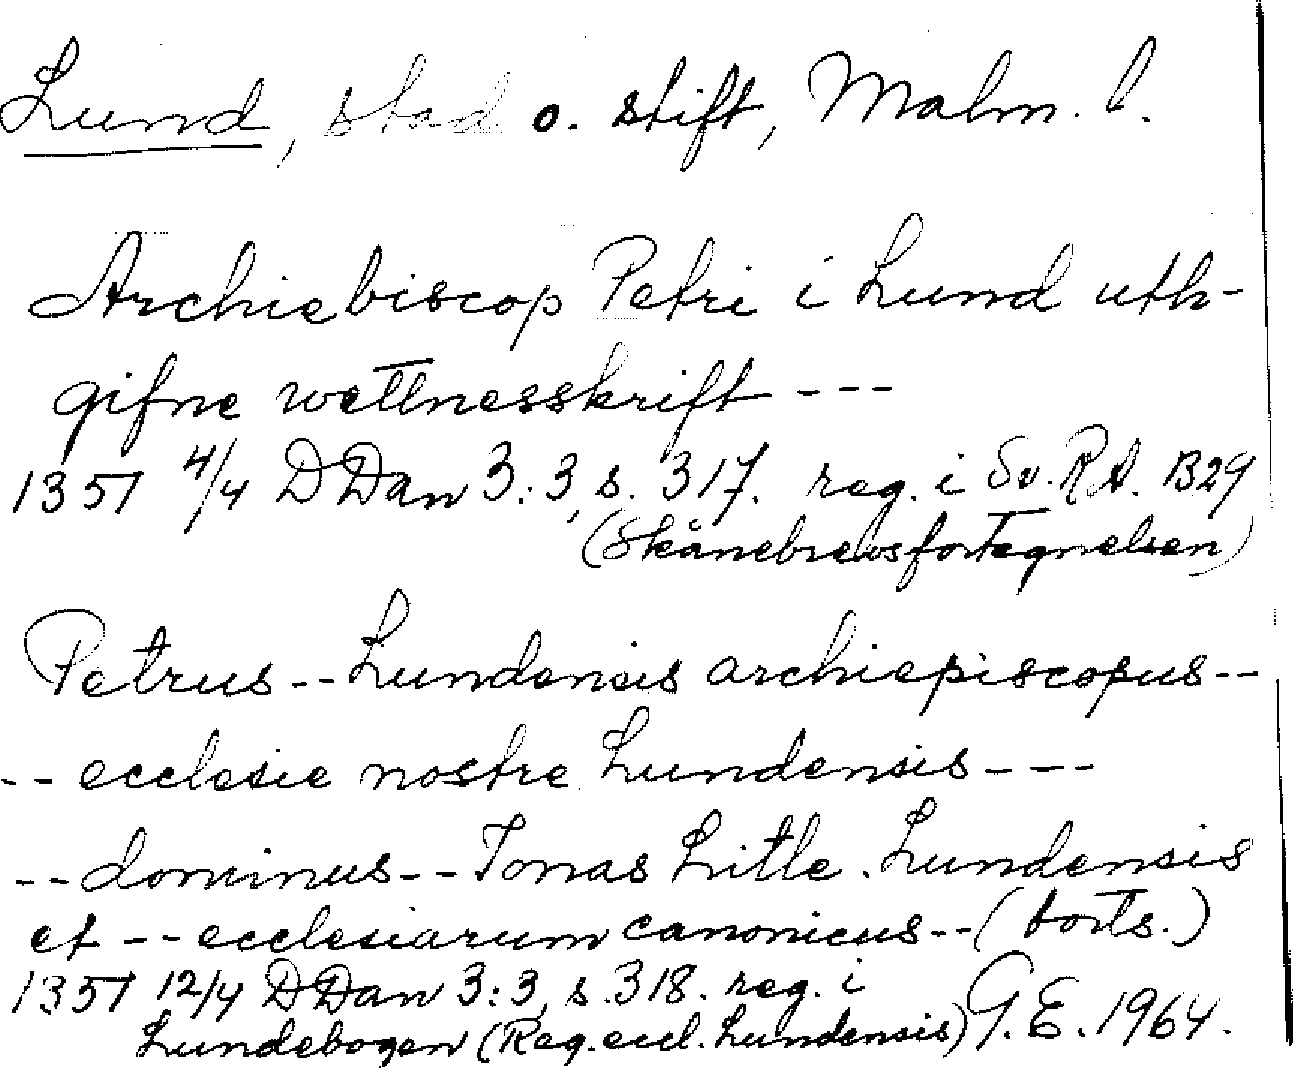 Lund, stad o. stift, Malm. l.
Archiebiscop Petri i Lund uth-
gifne wettnesskrift ---
1351 4/4 DDan 3:3, s. 317. reg. i Sv. RA. B29
(Skånebrevsfortegnelsen)
Petrus -- Lundensis archiepiscopus --
-- ecclesie nostre Lundensis ---
-- dominus -- Jonas Litle. Lundensis
et -- ecclesiarum canonicus -- (forts.)
1351 12/4 DDan 3:3, s. 318. reg. i
Lundebogen (Reg. eccl. Lundensis) G.E. 1964.